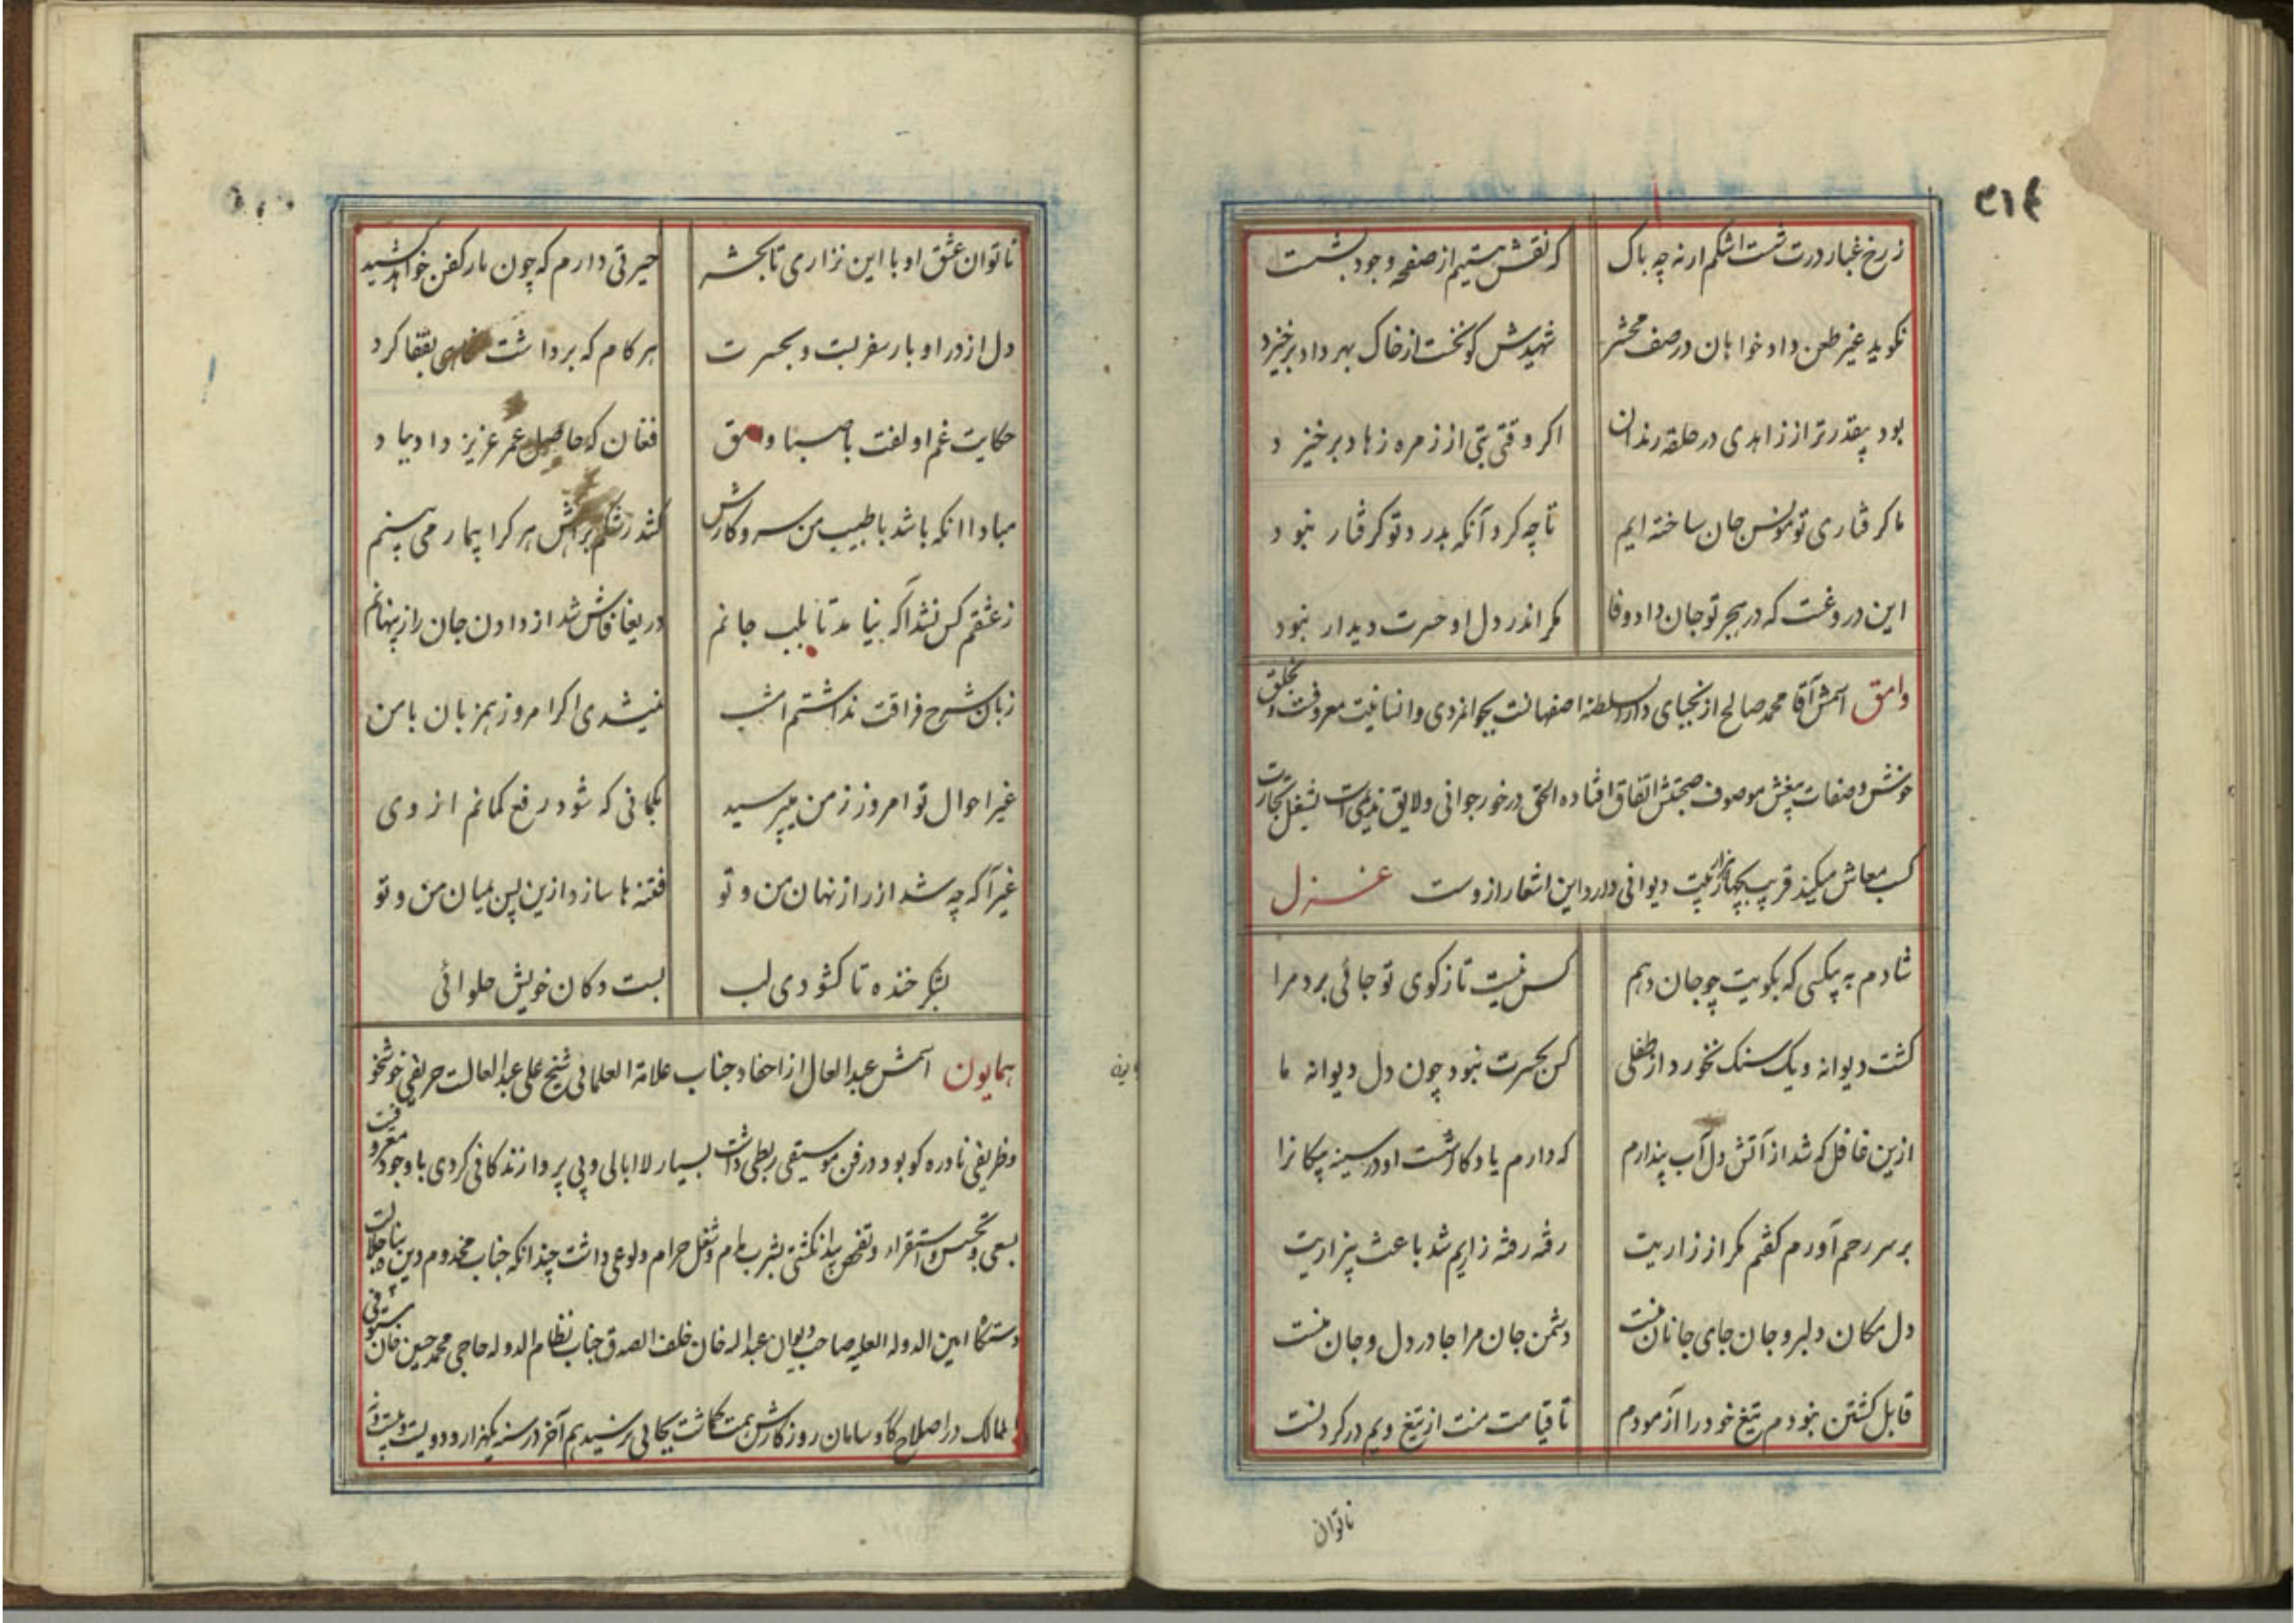 ۳۱۴
ز رخ غبار درت شست اشکم ار نه چه باک
که نقش هستیم از صفحه وجود بشست
نکوید غیر طعن داد خواهان در صف محشر
شهیدش کو نخست از خاک بهر داد برخیزد
بود بیقدرتر از زاهدی در حلقه رندان
اکر وقتی بتی از زمره زهاد برخیزد
ما کرفتاری تو مونس جان ساخته ایم
تا چه کرد آنکه بدرد تو کرفتار نبود
این دروغست که در هجر تو جان داد وفا
مکر اندر دل او حسرت دیدار نبود
وامق اسمش آقا محمد صالح از نجبای دارالسلطنه اصفهانست بجوانمردی و انسانیت معروفست و بخلق
خوش و صفات بیغش موصوف صحبتش اتفاق افتاده الحق در خور جوانی و لایق ندیمی است بشغل تجارت
کسب معاش میکند قریب بچهار هزار بیت دیوانی دارد این اشعار از وست غزل
شادم به بیکسی که بکویت چو جان دهم
کس نیست تا ز کوی تو جائی برد مرا
کشت دیوانه و یک سنک نخورد از طفلی
کس بحسرت نبود چون دل دیوانه ما
ازین غافل که شد از آتش دل آب پندارم
که دارم یادکار شست او در سینه پیکانرا
بر سر رحم آورم کفتم مکر از زاریت
رفته رفته زاریم شد باعث بیزاریت
دل مکان دلبر و جان جای جانان منست
دشمن جان مرا جا در دل و جان منست
قابل کشتن نبودم تیغ خود را آزمودم
تا قیامت منت از تیغ ویم در کردنست
ناتوان
ناتوان عشق او با این نزاری تا بحشر
حیرتی دارم که چون بار کفن خواهد کشید
دل از در او بار سفر بست و بحسرت
هر کام که برداشت نکاهی بقفا کرد
حکایت غم او لفت با صبا وامق
فغان که حاصل عمر عزیز داد بباد
مبادا انکه باشد با طبیب من سر و کارش
کشد رشکم براهش هر کرا بیمار می بینم
ز عشقم کس نشد آکه نیامد تا بلب جانم
دریغا فاش شد از دادن جان راز پنهانم
زبان شرح فراقت نداشتم امشب
نمیشدی اکر امروز همزبان با من
غیر احوال تو امروز ز من میپرسید
بکمانی که شود رفع کمانم از وی
غیر آکه چه شد از راز نهان من و تو
فتنه ها سازد ازین پس بمیان من و تو
بشکر خنده تا کشودی لب
بست دکان خویش حلوائی
همایون اسمش عبدالعال از احفاد جناب علامة العلمائی شیخ علی عبدالعالست حریفی خوشخو
وظریفی نادره کو بود در فن موسیقی ربطی داشت بسیار لاابالی و بی پروا زندکانی کردی با وجود معروفیت
بسعی و تجسس و استقراء و تفحص بشرب مدام و شغل حرام ولوعی داشت چندانکه جناب مخدوم دین پناه جلالت
دستکاه امین الدوله العلیه صاحب دیوان عبداله خان خلف الصدق جناب نظام الدوله حاجی محمد حسین خان مستوفی
الممالک در اصلاح کار و سامان روزکارش همت کماشت بجائی نرسید هم آخر در سنه یکهزار و دویست و بیست و